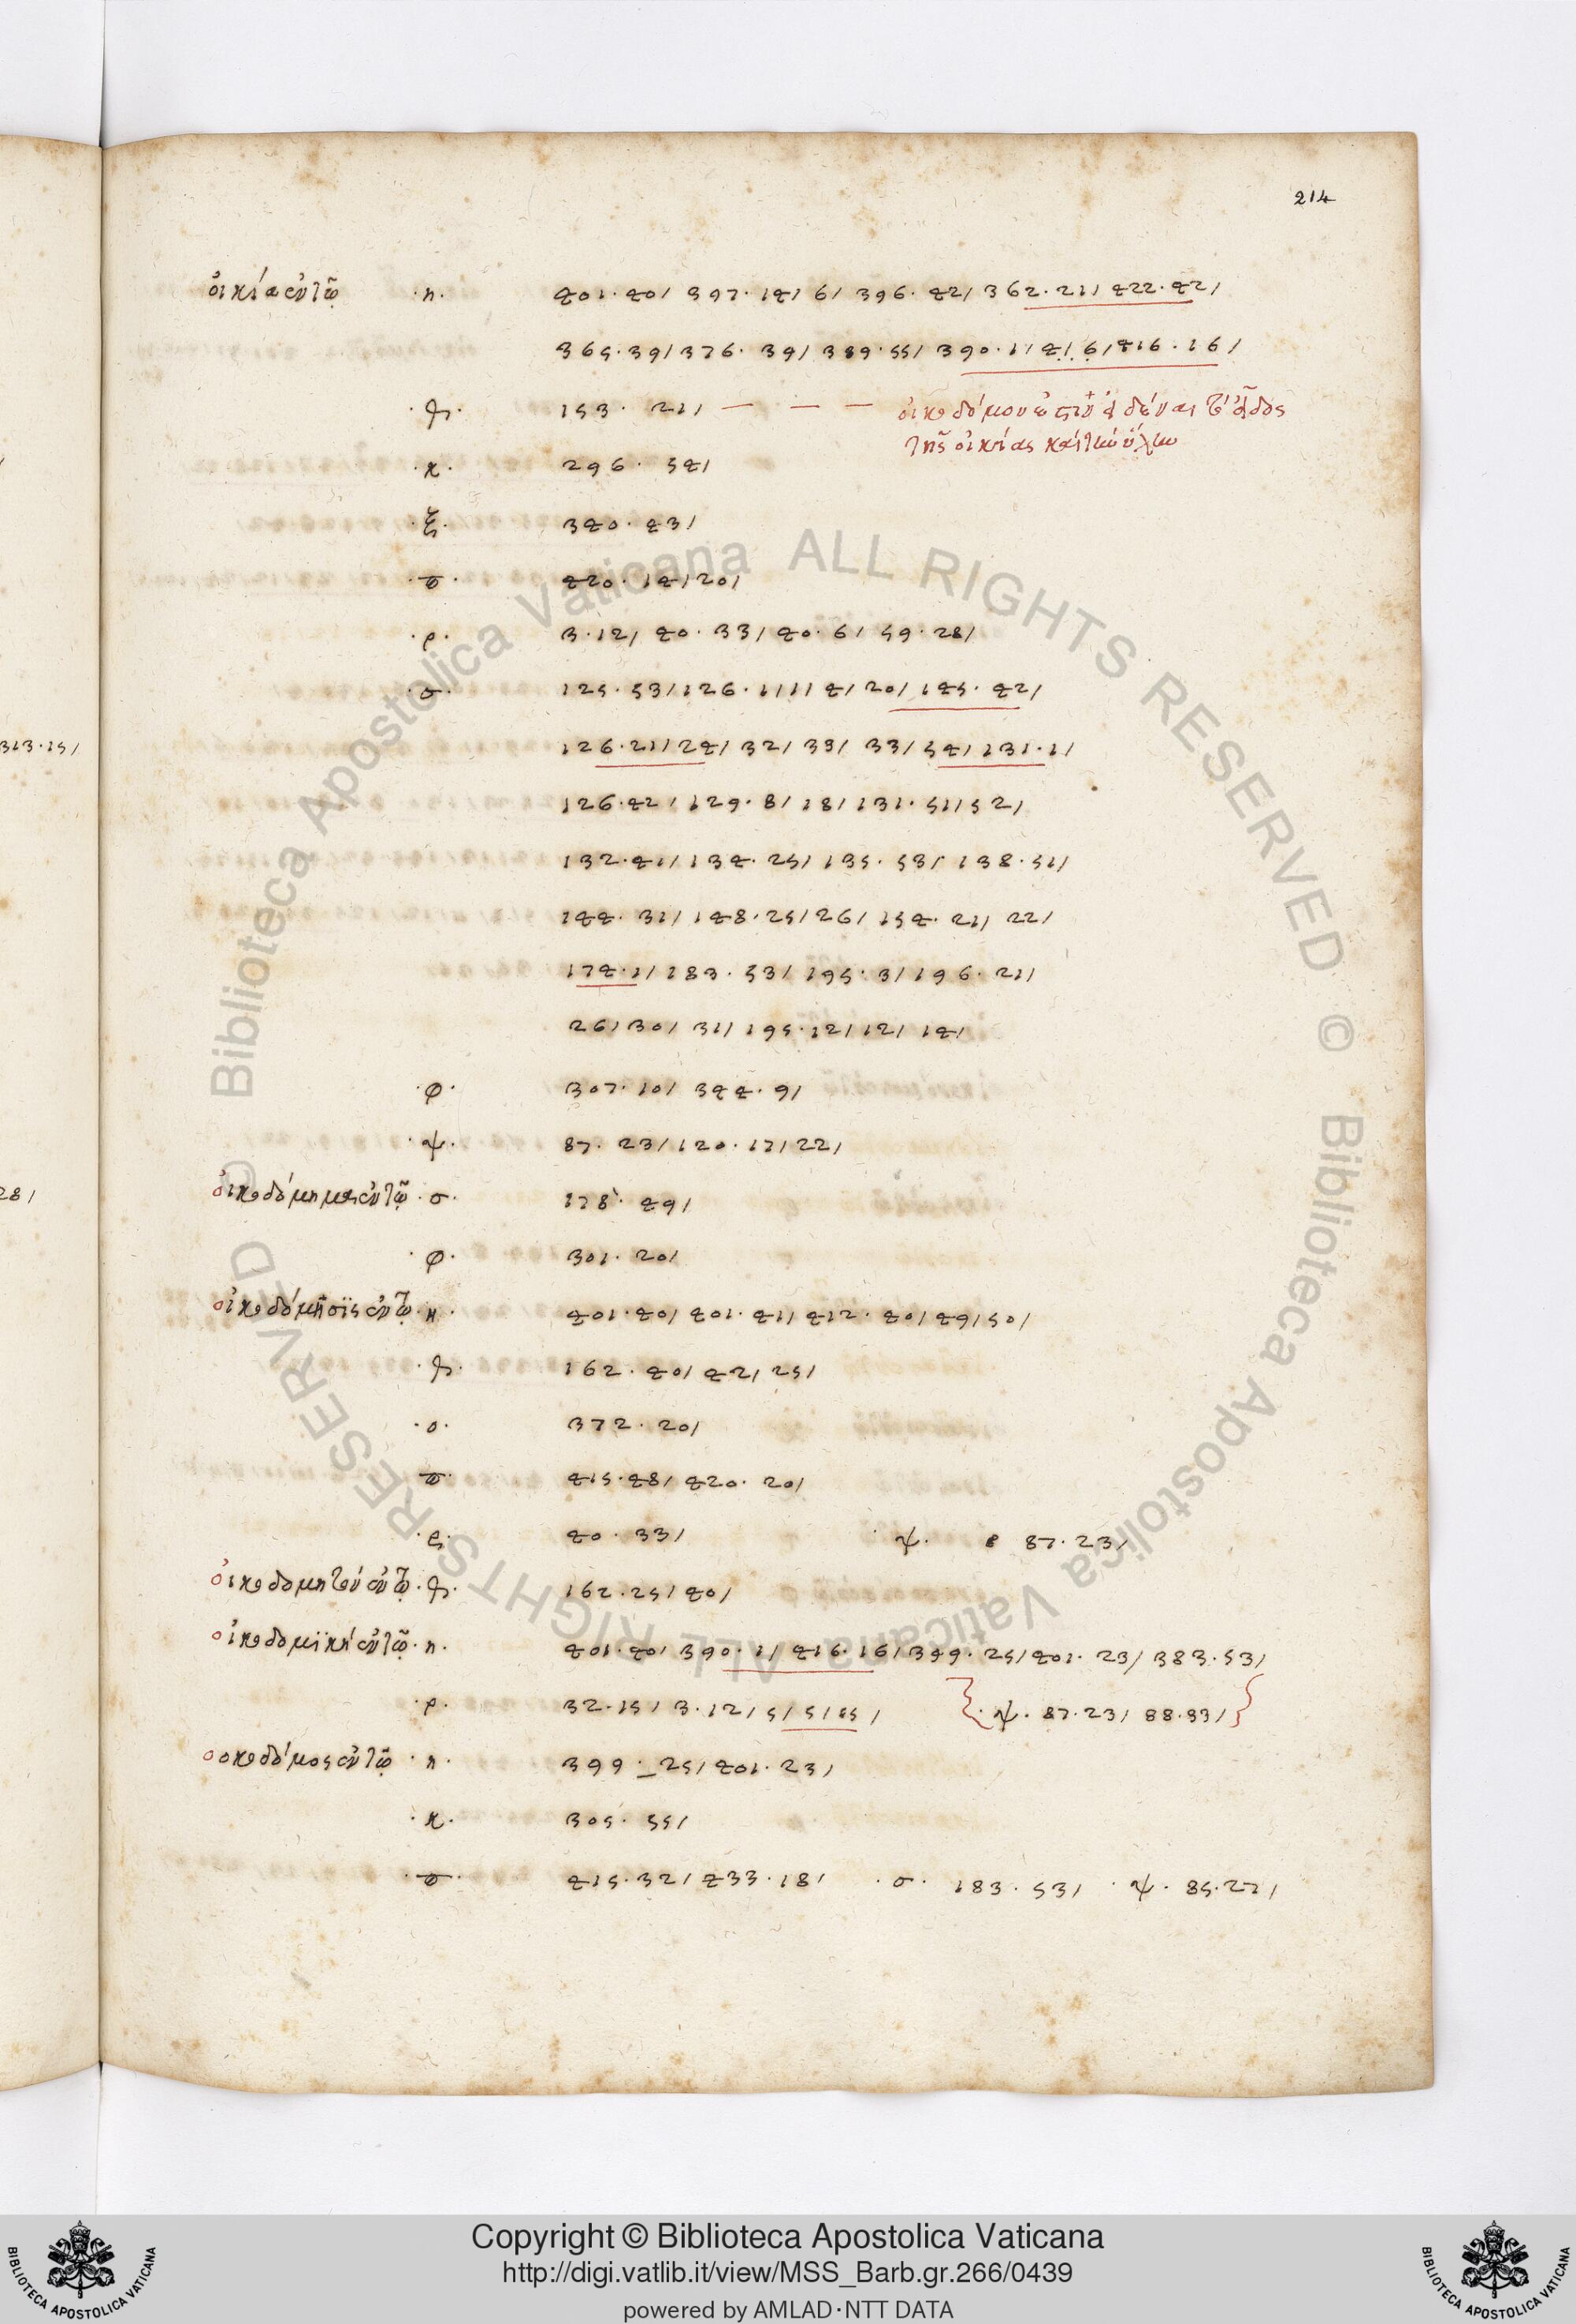 214
οἰκία ἐν τῷ ·η· 401·40/ 397·14/ 6/ 396·42/ 362·21/ 422·42/
365·39/ 376·39/ 389·55/ 390·1/ 4/ 6/ 416·16/
153·21/ — — —
τῆς οἰκίας καὶ τὴν ὕλην
·κ· 296·54/
·ξ· 340·43/
·π· 420·14/ 20/
·ρ· 3·12/ 40·33/ 40·6/ 59·28/
·σ· 125·53/ 126·1/ 1/ 4/ 20/ 145·42/
313·15/
126·21/ 24/ 32/ 33/ 33/ 54/ 131·1/
126·42/ 129·8/ 18/ 131·51/ 52/
132·41/ 134·25/ 135·53/ 138·51/
144·31/ 148·25/ 26/ 154·21/ 22/
174·1/ 183·53/ 195·3/ 196·21/
26/ 30/ 31/ 195·12/ 12/ 14/
·φ· 307·10/ 344·9/
·ψ· 87·23/ 120·17/ 22/
28/
οἰκοδόμημα ἐν τῷ ·σ· 178·49/
·φ· 301·20/
οἰκοδόμησις ἐν τῷ ·η· 401·40/ 401·41/ 412·40/ 49/ 50/
162·40/ 42/ 25/
·ο· 372·20/
·π· 415·48/ 420·20/
·ρ· 40·33/ ·ψ· 87·23/
162·25/ 40/
οἰκοδομικὴ ἐν τῷ ·η· 401·40/ 390·1/ 416·16/ 399·25/ 401·23/ 383·53/
·ρ· 32·15/ 3·12/ 5/ 5/ 55/ {·ψ· 87·23/ 88·33/}
οοκοδόμος ἐν τῷ ·η· 399·25/ 401·23/
·κ· 305·55/
·π· 415·32/ 433·18/ ·σ· 183·53/ ·ψ· 85·27/
Biblioteca Apostolica Vaticana ALL RIGHTS RESERVED ©
Biblioteca Apostolica Vaticana ALL RIGHTS RESERVED ©
Copyright © Biblioteca Apostolica Vaticana
http://digi.vatlib.it/view/MSS_Barb.gr.266/0439
powered by AMLAD·NTT DATA
BIBLIOTECA APOSTOLICA VATICANA
BIBLIOTECA APOSTOLICA VATICANA